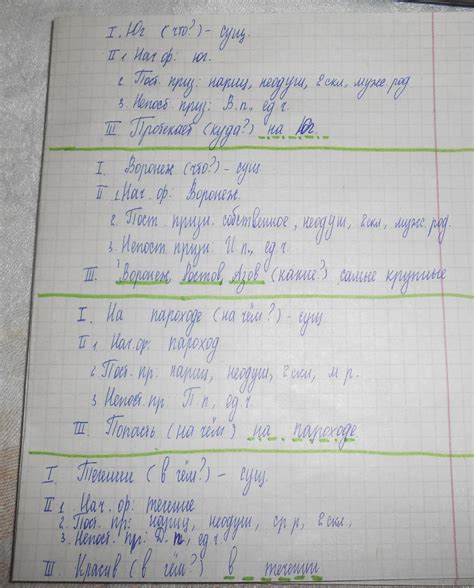 I. Юг (что?) - сущ.
II 1 Нач. ф: юг.
2. Пост. приз: нариц, неодуш, 2 скл, муж. род.
3. Непост. приз: В.п., ед ч.
III Протекает (куда?) на Юг.
I. Воронеж (что?) - сущ.
II 1. Нач. ф: Воронеж.
2. Пост. призн. собственное, неодуш, 2 скл, муж. род.
3. Непост. призн: И.п., ед ч.
III. Воронеж, Ростов, Азов (какие?) самые крупные
I. На пароходе (на чём?) - сущ
II 1 Нач. ф: пароход
2. Пост. пр: нариц, неодуш, 2 скл, м р.
3. Непост. пр П.п, ед ч.
III. Попасть (на чём) на пароходе
I. Течении (в чём?) - сущ.
II 1 Нач. ф: течение
2. Пост. пр: нариц, неодуш, ср р, 2 скл,
3. Непост. пр: п, ед ч.
III Красив (в чём?) в течении